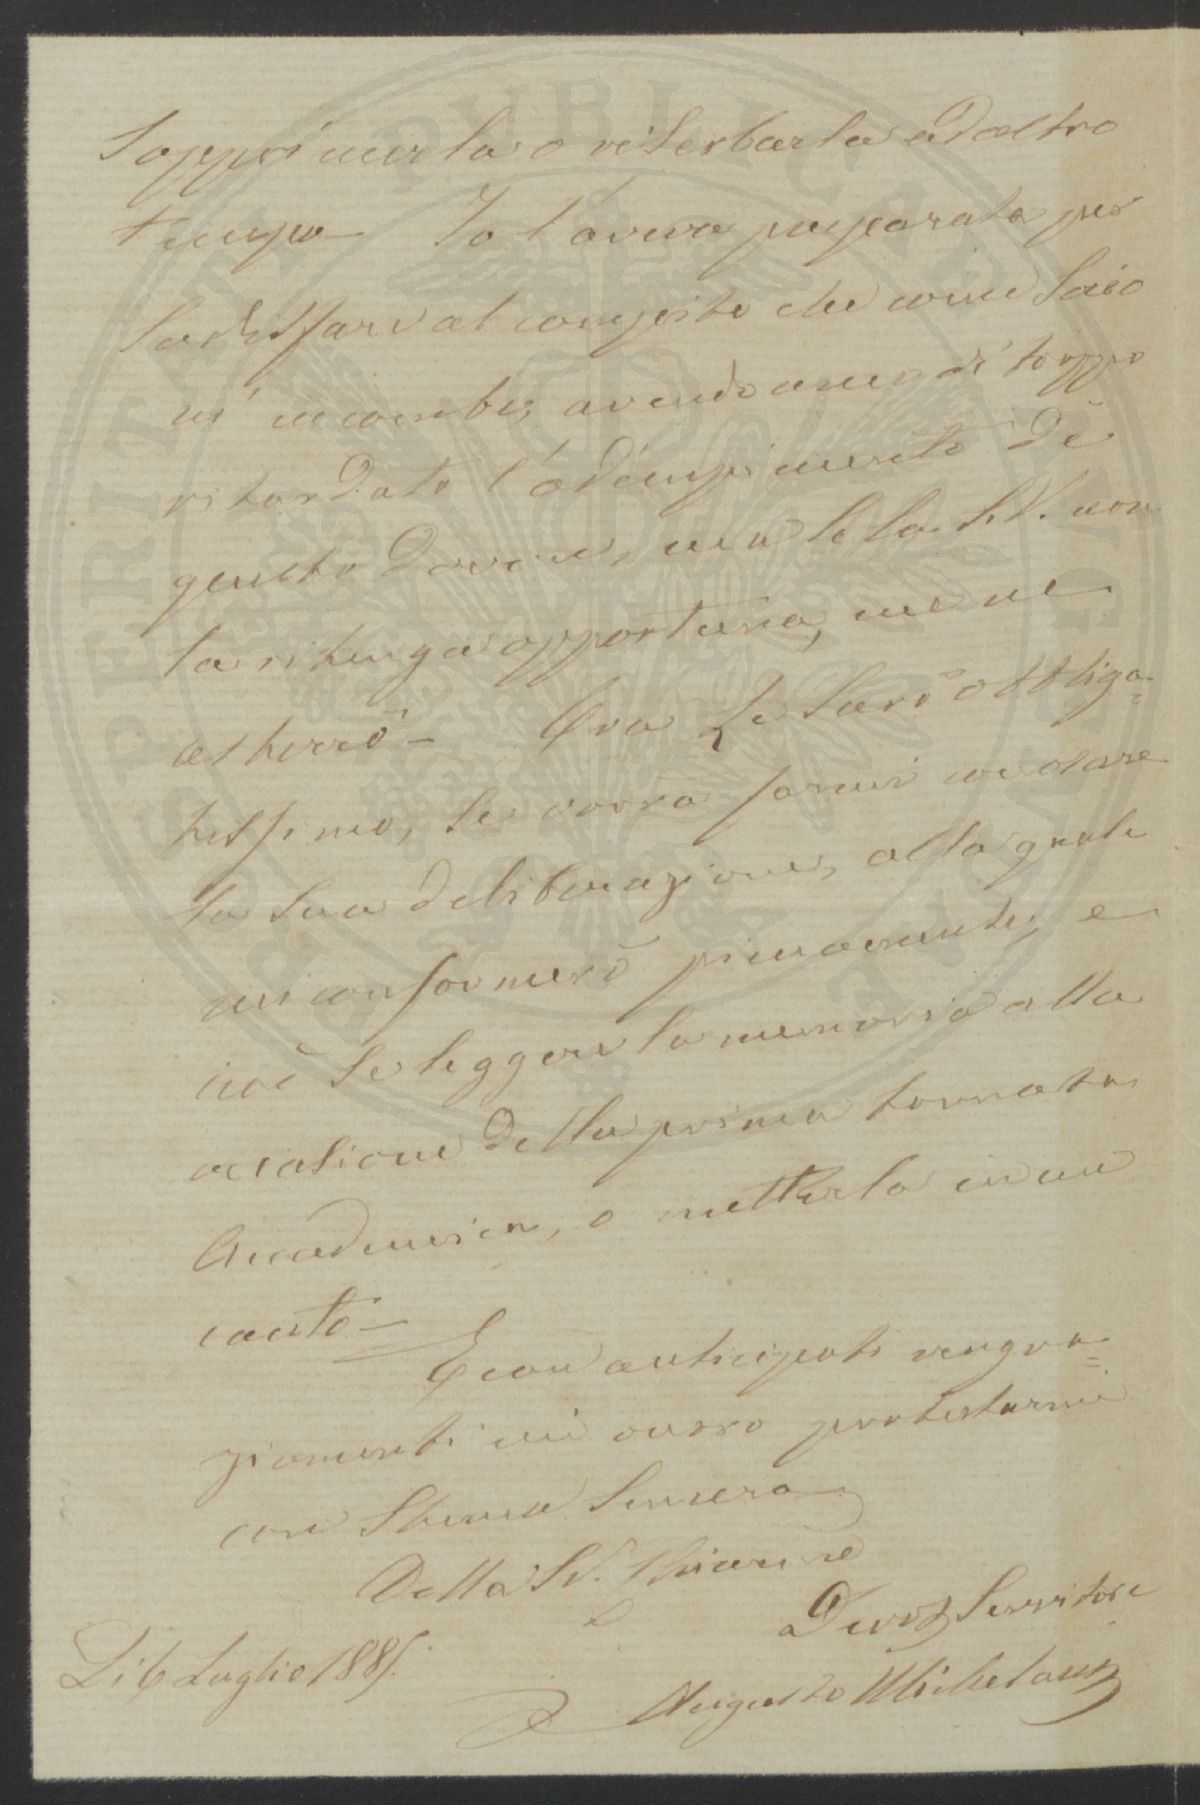 sopprimerla o riserbarla ad altro
tempo – Io l'aveva preparata per
sodisfare al compito che come socio
m'incombe, avendo anche di troppo
ritardato l'adempimento di
questo dovere, ma se la S.V. non
la ritenga opportuna, me ne
asterrò – Ora Le sarò obbliga=
tissimo, se vorrà farmi conoscere
la sua deliberazione, alla quale
mi conformerò pienamente, e
cioè se leggere la memoria alla
occasione della prima tornata
Accademica, o metterla in un
canto –
E con anticipati ringra=
ziamenti mi onoro protestarmi
con stima sincera
Della S.V. Chiarma
Li 6 Luglio 188
Devoto Servitore
Augusto Michelangeli
PROSPERITATI PVBLICAE AVGENDAE